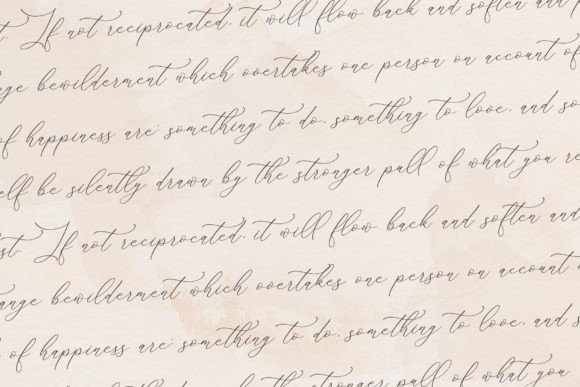 st. If not reciprocated, it will flow back and soften and p
nge bewilderment which overtakes one person on account of
of happiness are: something to do, something to love, and so
elf be silently drawn by the stronger pull of what you re
st. If not reciprocated, it will flow back and soften and
ange bewilderment which overtakes one person on account
of happiness are: something to do, something to love, and s
be silently drawn by the stronger pull of what you